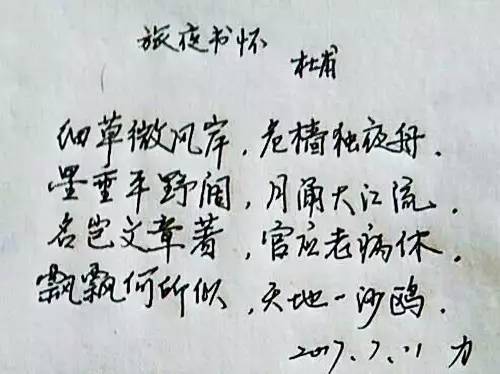 旅夜书怀
杜甫
细草微风岸，危樯独夜舟．
星垂平野阔，月涌大江流．
名岂文章著，官应老病休．
飘飘何所似，天地一沙鸥．
2017.7.11 力